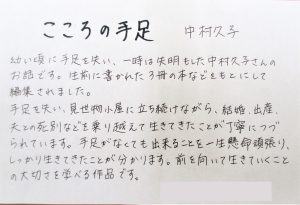 こころの手足　中村久子
幼い頃に手足を失い、一時は失明もした中村久子さんの
お話です。生前に書かれた3冊の本などをもとにして
編集されました。
手足を失い、見世物小屋に立ち続けながら、結婚、出産、
夫との死別などを乗り越えて生きてきたことが丁寧につづ
られています。手足がなくても出来ることを一生懸命頑張り、
しっかり生きてきたことが分かります。前を向いて生きていくこと
の大切さを学べる作品です。